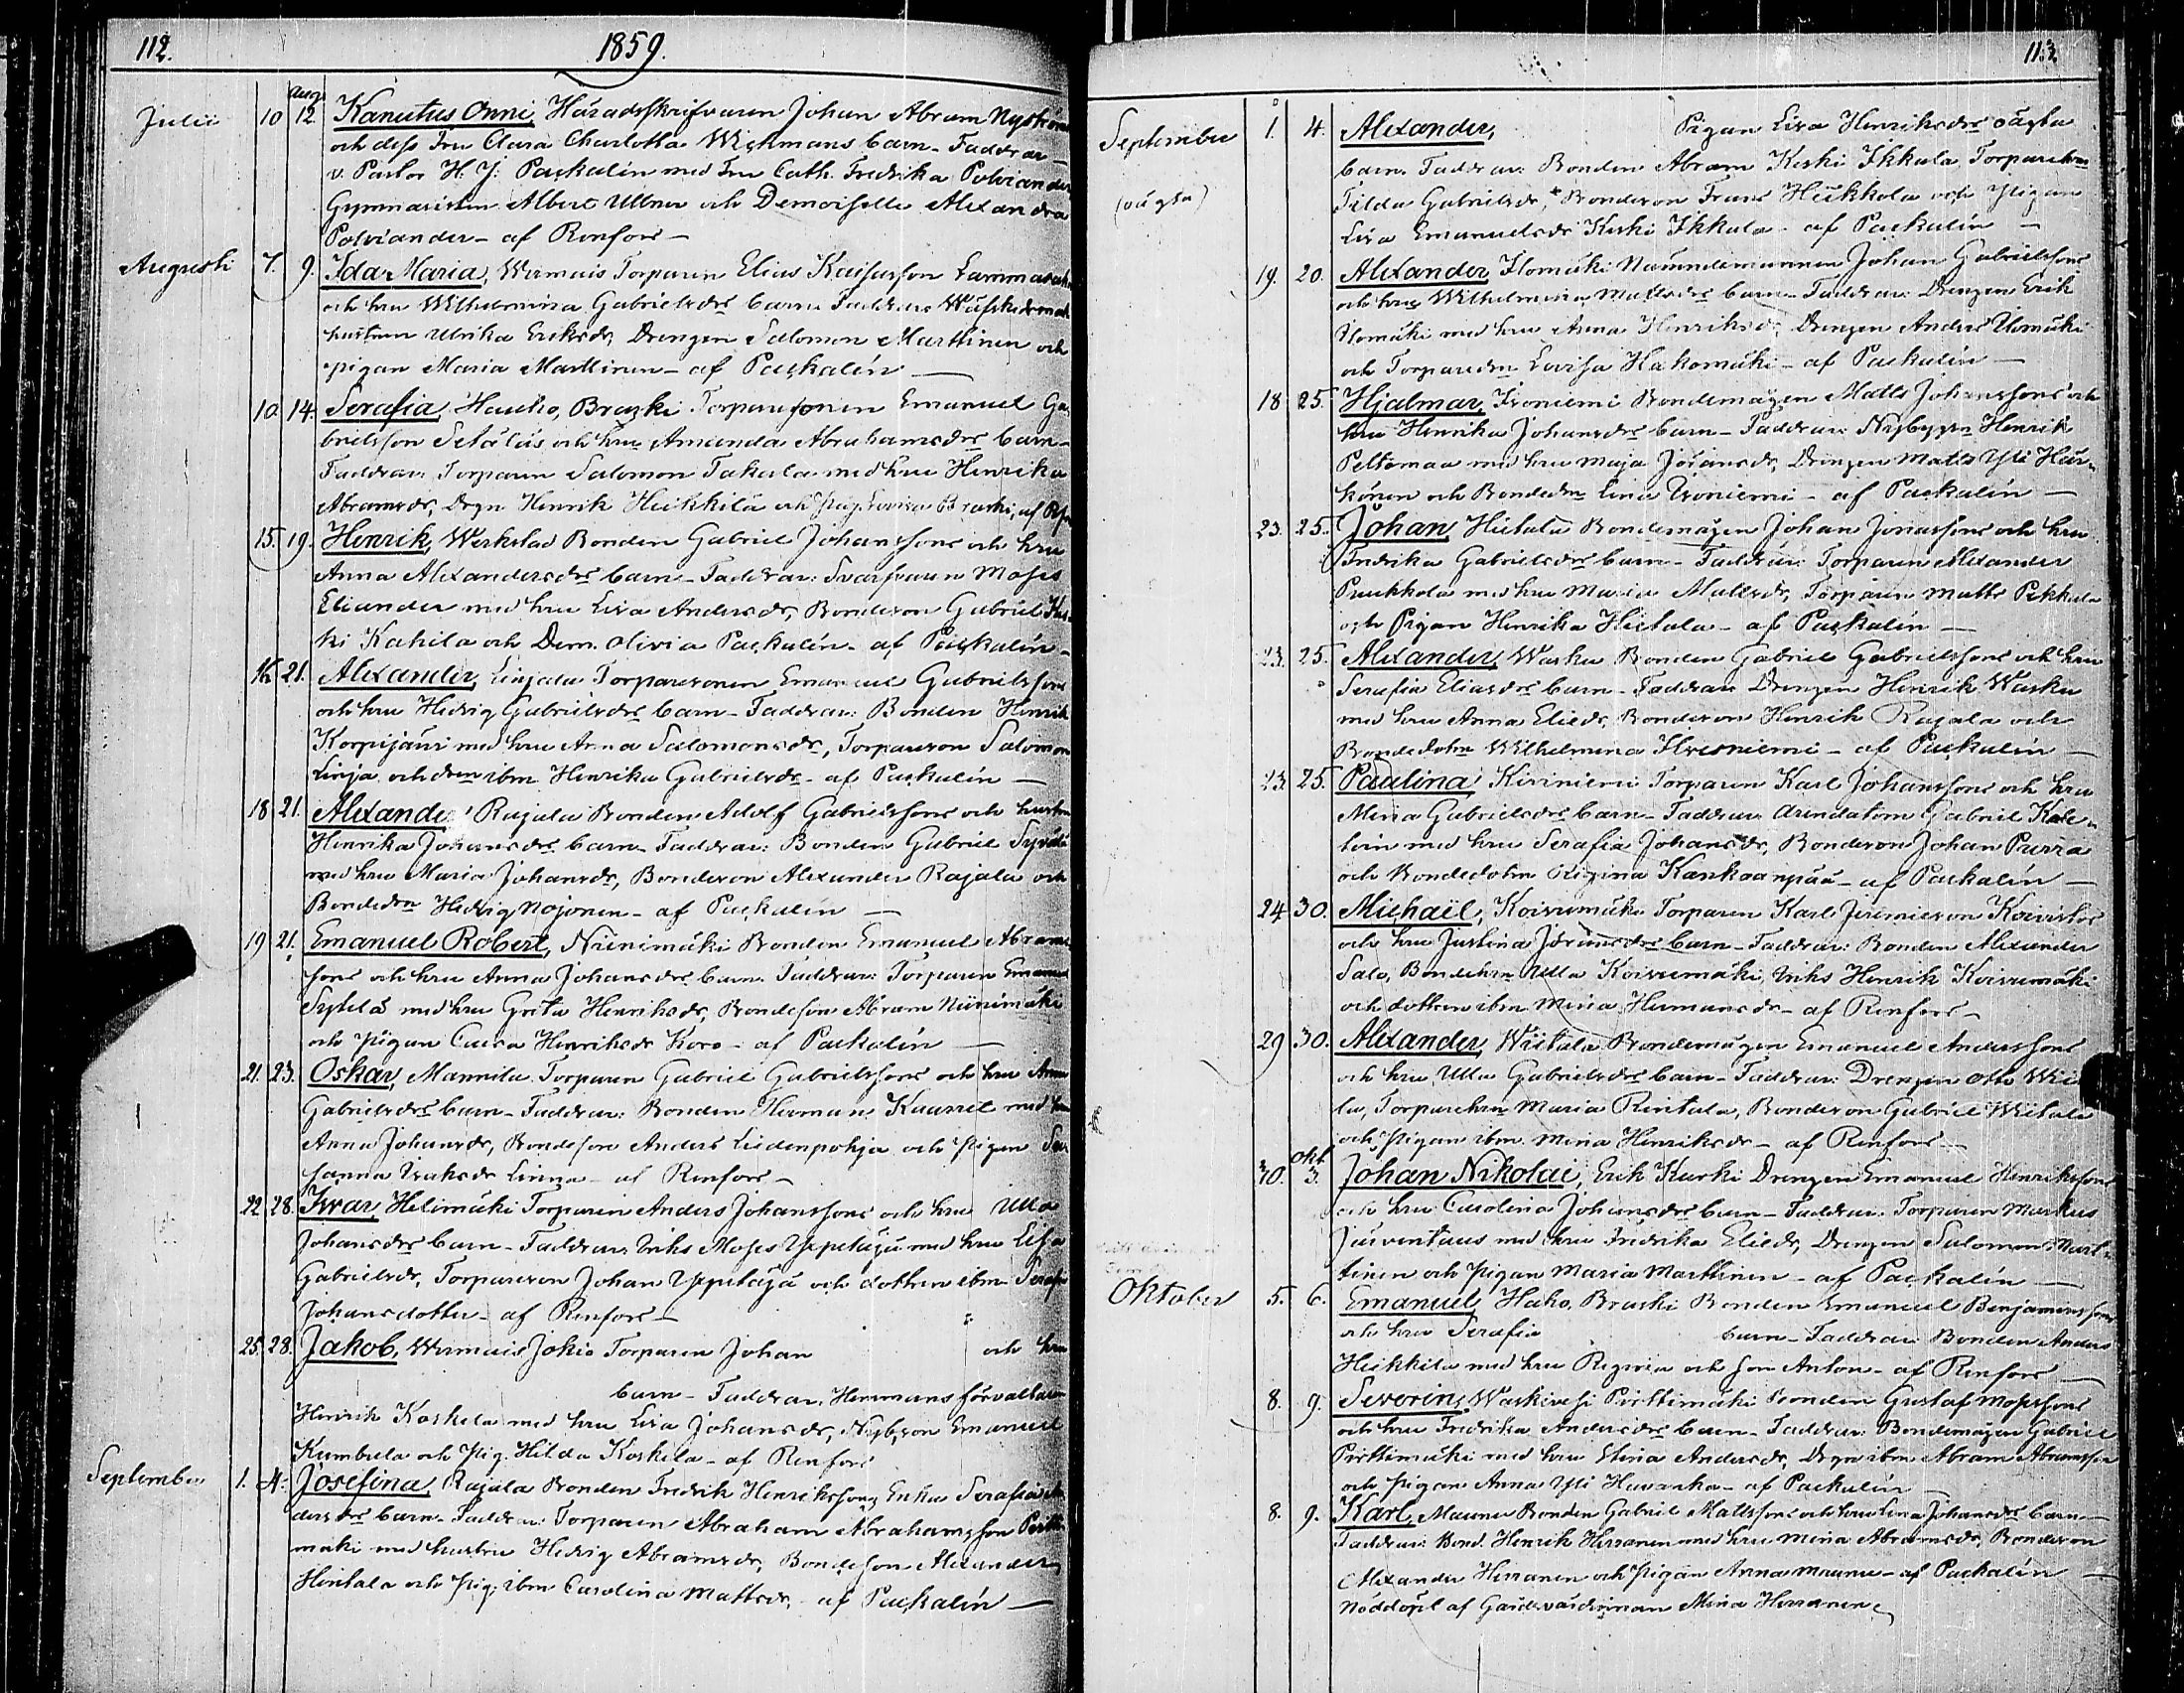 112.
1859.
Aug.
Julii 10 12 Kanutus Onni, Häradsskrifvaren Johan Abram Nyström
och dess Fru Clara Charlotta Wichmans barn - Faddrar -
v. Pastor H. J. Paskalin med Fru Cath. Fredrika Polviander
Gymnasisten Albert Ullner och Demoiselle Alexandra
Polviander - af Renfors -
Augusti 7. 9. Ida Maria, Wermais Torparen Elias Kaisasson
och hru Wilhelmina Gabrielsdrs barn. Faddrar
hustrun Ulrika Eriksdr, Drengen Salomon Marttinen och
pigan Maria Marttinen - af Paskalin -
10. 14. Serafia, Hauko, Braski Torparesonen Emanuel Ga-
brielsson Setäläs och hru Amanda Abrahamsdrs barn -
Faddrar: Torparen Salomon Takala med hru Henrika
Abramsdr, Dreng Henrik Heikkilä och pig. Lovisa Braski, af
15. 19. Henrik, Werkstad Bonden Gabriel Johanssons och hru
Anna Alexandersdrs barn - Faddrar: Svarfvaren Moses
Eliander med hru Lisa Andersdr, Bondeson Gabriel Kes-
ki Kahila och Dem. Olivia Paskalin - af Paskalin -
16. 21. Alexander, Linjala Torparesonen Emanuel Gabrielssons
och hru Hedvig Gabrielsdrs barn - Faddrar: Bonden Henrik
Korpijärvi med hru Anna Salomonsdr, Torpareson Salomon
Linja och dren ibm Henrika Gabrielsdr - af Paskalin -
18 21. Alexander, Rajala Bonden Adolf Gabrielssons och hustru
Henrika Johansdrs barn - Faddrar: Bonden Gabriel
med hru Maria Johansdr, Bondeson Alexander Rajala och
Bondedrn Hedvig Nojonen - af Paskalin -
19 21. Emanuel Robert, Niinimäki Bonden Emanuel Abrams-
sons och hru Anna Johansdrs barn. Faddrar: Torparen Emanuel
Sytelä med hru Greta Henriksdr, Bondeson Abram Niinimäki
och pigan Caisa Henriksdr Koro - af Paskalin -
21. 23. Oskar, Mannila Torparen Gabriel Gabrielssons och hru Anna
Gabrielsdrs barn - Faddrar: Bonden Herman med hru
Anna Johansdr, Bondeson Anders Liedenpohja och pigan Su-
sanna Isaksdr Linna - af Renfors -
22 28. Iwar, Helimäki Torparen Anders Johanssons och hru Ulla
Johansdrs barn - Faddrar: Inhs Moses Yxpitäjä med hru Lisa
Gabrielsdr, Torpareson Johan Yxpitäjä och dottren ibm Serafia
Johansdotter - af Renfors -
25. 28. Jakob, Wermais Jokio Torparen Johan och hru
barn - Faddrar: Herrmans förvaltaren
Henrik Koskela med hru Lisa Johansdr, Nybgson Emanuel
Kumbula och pig. Hilda Koskela - af Renfors
September 1. 4. Josefina, Rajala Bonden Fredrik Henrikssons Enka Serafia An-
dersdrs barn - Faddrar: Torparen Abraham Abrahamsson Pertti-
mäki med hustru Hedvig Abramsdr, Bondeson Alexander
Hintala och pig. ibm Carolina Mattsdr, af Paskalin -
113
September 1. 4. Alexander, Pigan Lisa Henriksdrs oägta
(oägta)
barn. Faddrar: Bonden Abram Keski Ikkala, Torparehru
Tilda Gabrielsdr, Bondeson Frans Heikkola och pigan
Lisa Emanuelsdr Keski Ikkala - af Paskalin -
19. 20. Alexander, Ilomäki Nämndemannen Johan Gabrielssons
och hru Wilhelmina Mattsdrs barn - Faddrar: Drengen Erik
Ilomäki med hru Anna Henriksdr, Drengen Anders Ilomäki
och Torparedrn Lovisa Hakomäki - af Paskalin -
18 25. Hjalmar, Isoniemi Bondemågen Matts Johanssons och
hru Henrika Johansdrs barn - Faddrar: Nybyggn Henrik
Peltomaa med hru Maja Johansdr, Drengen Matts Yli Här-
könen och Bondedrn Lina Isoniemi - af Paskalin -
23. 25. Johan, Hietala Bondemågen Johan Jonassons och hru
Fredrika Gabrielsdrs barn - Faddrar: Torparen Alexander
Puukkola med hru Maria Mattsdr, Torparen Matts Pekkala
och Pigan Henrika Hietala - af Paskalin -
23. 25. Alexander, Wasku Bonden Gabriel Gabrielssons och hru
Serafia Eliasdrs barn - Faddrar: Drengen Henrik Wasku
med hru Anna Eliedr, Bondeson Henrik Rajala och
Bondedotrn Wilhelmina Hirsniemi - af Paskalin -
23. 25. Paulina, Kiviniemi Torparen Karl Johanssons och hru
Mina Gabrielsdrs barn - Faddrar: Arendatorn Gabriel Kale-
tein med hru Serafia Johansdr, Bondeson Johan Purra
och Bondedotrn Regina Kankaanpää - af Paskalin -
24 30. Michaël, Koivumäki Torparen Karl Jeremiesson Koivistos
och hru Justina Jöransdrs barn - Faddrar: Bonden Alexander
Salo, Bondehru Ulla Koivumäki, Inhs Henrik Koivumäki
och dottren ibm Mina Hermansdr - af Renfors -
29 30. Alexander, Wiitala Bondemågen Emanuel Anderssons
och hru Ulla Gabrielsdrs barn - Faddrar: Drengen Otto Wii-
la, Torparehru Maria Rintala, Bondeson Gabriel Wiitala
och pigan ibm Mina Henriksdr - af Renfors -
Okt
30. 3. Johan Nikolai, Erik Kurki Drengen Emanuel Henrikssons
och hru Carolina Johansdrs barn - Faddrar: Torparen Markus
Järventaus med hru Fredrika Eliedr, Drengen Salomon Mart-
tinen och pigan Maria Marttinen - af Paskalin -
Oktober 5. 6. Emanuel, Hako, Braski Bonden Emanuel Benjaminssons
och hru Serafia barn - Faddrar: Bonden Anders
Heikkila med hru Regina och son Anton - af Renfors -
8. 9. Severin, Waskivesi Pirttimäki Bonden Gustaf Mosessons
och hru Fredrika Andersdrs barn - Faddrar: Bondemågen Gabriel
Pirttimäki med hru Stina Andersdr, Dregn ibm Abram Abramsson
och pigan Anna Yli Huvanka - af Paskalin
8. 9. Karl, Maunu Bonden Gabriel Mattssons och hru Lina Johansdrs barn -
Faddrar: Bond. Henrik Hirranen med hru Mina Abramsdr, Bondeson
Alexander Hirranen och pigan Anna Maunu - af Paskalin -
Nöddöpt af Gårdsvärdinnan Mina Hirranen